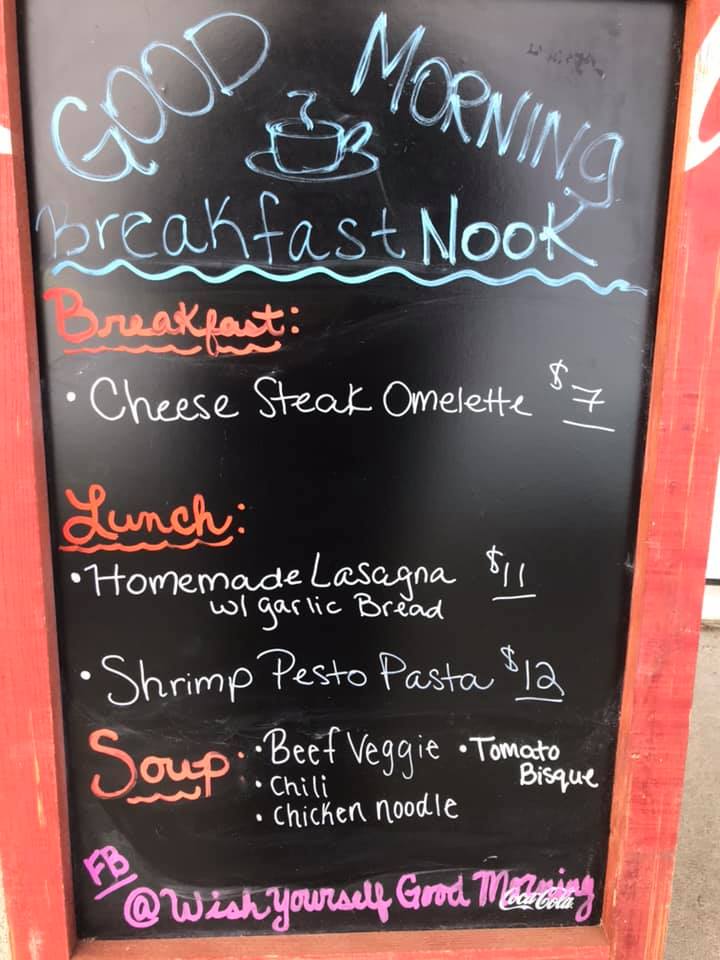 GOOD MORNING
Breakfast Nook
Breakfast:
• Cheese Steak Omelette $7
Lunch:
• Homemade Lasagna $11
w/ garlic Bread
• Shrimp Pesto Pasta $12
Soup: • Beef Veggie • Tomato Bisque
• Chili
• Chicken noodle
FB
@ Wish Yourself Good Morning
Coca-Cola